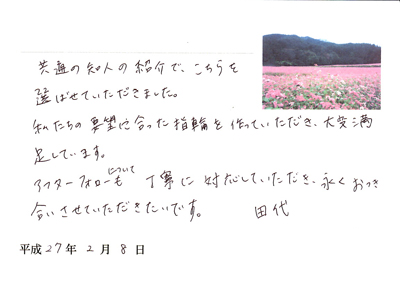 共通の知人の紹介で、こちらを
選ばせていただきました。
私たちの要望に合った指輪を作っていただき、大変満
足しています。
アフターフォローについても 丁寧に対応していただき、永くおつき
合いさせていただきたいです。 田代
平成27年2月8日